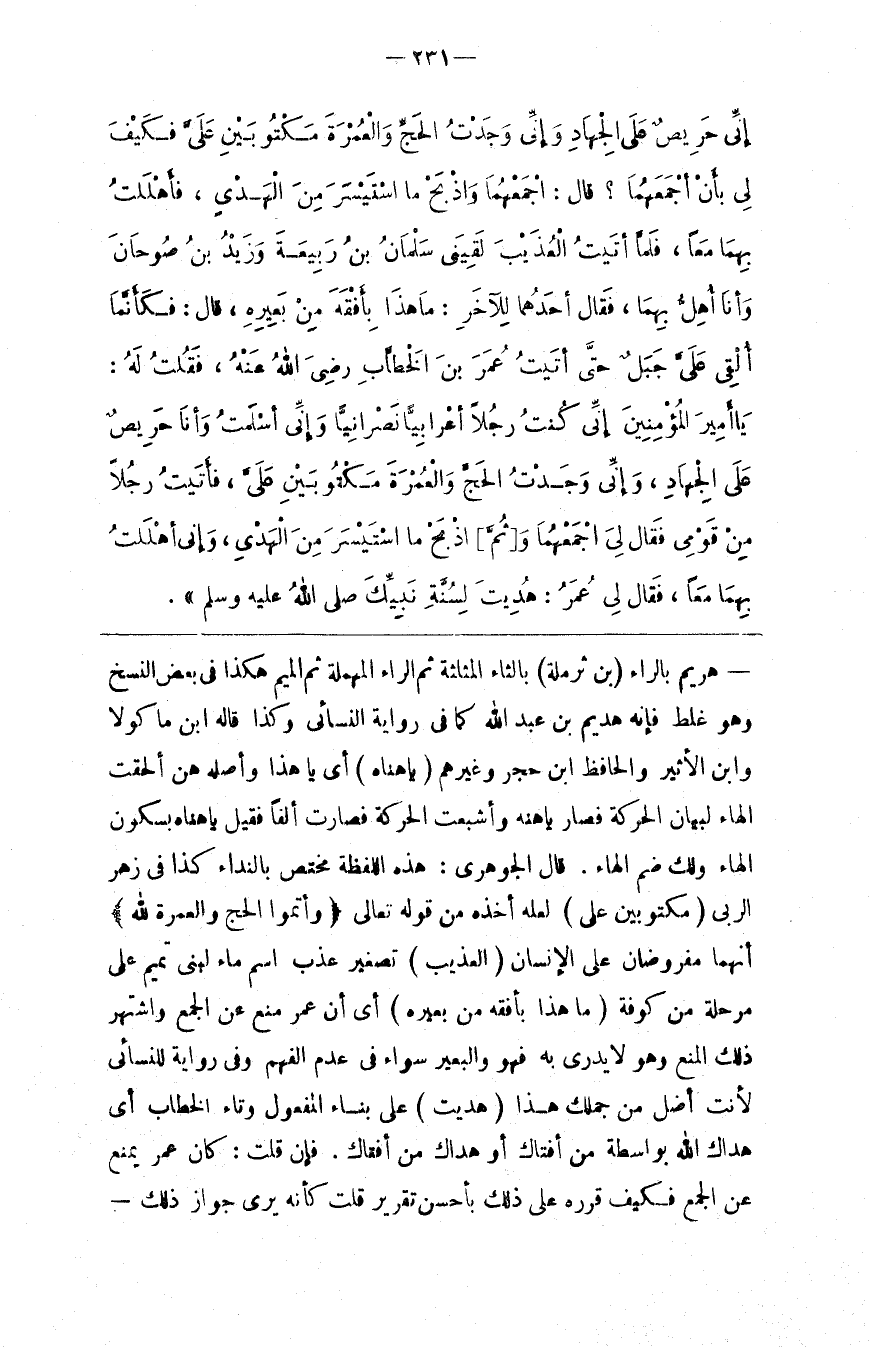 — ٢٣١ —
إِنِّى حَرِيصٌ عَلَى الْجِهَادِ وَإِنِّى وَجَدْتُ الْحَجَّ وَالْعُمْرَةَ مَكْتُوبَيْنِ عَلَىَّ فَكَيْفَ
لِى بِأَنْ أَجْمَعَهُمَا ؟ قال : اجْمَعْهُمَا وَاذْبَحْ ما اسْتَيْسَرَ مِنَ الْهَدْىِ ، فَأَهْلَلْتُ
بِهِمَا مَعًا ، فَلَمَّا أَتَيْتُ الْعُذَيْبَ لَقِيَنِى سَلْمَانُ بنُ رَبِيعَةَ وَزَيْدُ بنُ صُوحَانَ
وَأَنَا أُهِلُّ بِهِمَا ، فَقَال أَحَدُهُمَا لِلْآخَرِ : مَاهذَا بِأَفْقَهَ مِنْ بَعِيرِهِ ، قال : فَكَأَنَّمَا
أُلْقِىَ عَلَىَّ جَبَلٌ حتَّى أَتَيْتُ عُمَرَ بنَ الْخَطَّابِ رضِىَ اللهُ عَنْهُ ، فَقُلتُ لَهُ :
يَاأَمِيرَ الْمُؤْمِنِينَ إِنِّى كُنتُ رجُلاً أَعْرابِيًّا نَصْرَانِيًّا وَإِنِّى أَسْلَمتُ وَأَنَا حَرِيصٌ
عَلَى الْجِهَادِ ، وَإِنِّى وَجَدْتُ الْحَجَّ وَالْعُمْرَةَ مَكْتُوبَيْنِ عَلَىَّ ، فَأَتَيتُ رجُلاً
مِنْ قَوْمِى فَقال لِىَ اجْمَعْهُمَا وَ[ثُمَّ] اذْبَحْ ما اسْتَيْسَرَ مِنَ الْهَدْىِ ، وَإِنى أَهْلَلتُ
بِهِمَا مَعًا ، فَقال لِى عُمَرُ : هُدِيتَ لِسُنَّةِ نَبِيِّكَ صلى اللهُ عليه وسلم » .
— هريم بالراء (بن ثرملة) بالثاء المثلثة ثم الراء المهملة ثم الميم هكذا فى بعض النسخ
وهو غلط فإنه هديم بن عبد الله كما فى رواية النسائى وكذا قاله ابن ماكولا
وابن الأثير والحافظ ابن حجر وغيرهم ( ياهناه ) أى يا هذا وأصله هن ألحقت
الهاء لبيان الحركة فصار ياهنه وأشبعت الحركة فصارت ألفاً فقيل ياهناه بسكون
الهاء ولك ضم الهاء . قال الجوهرى : هذه اللفظة مختص بالنداء كذا فى زهر
الربى ( مكتوبين على ) لعله أخذه من قوله تعالى ﴿ وأتموا الحج والعمرة لله ﴾
أنهما مفروضان على الإنسان ( العذيب ) تصغير عذب اسم ماء لبنى تميم على
مرحلة من كوفة ( ما هذا بأفقه من بعيره ) أى أن عمر منع عن الجمع واشتهر
ذلك المنع وهو لايدرى به فهو والبعير سواء فى عدم الفهم وفى رواية للنسائى
لأنت أضل من جملك هذا ( هديت ) على بناء المفعول وتاء الخطاب أى
هداك الله بواسطة من أفتاك أو هداك من أفقاك . فإن قلت : كان عمر يمنع
عن الجمع فكيف قرره على ذلك بأحسن تقرير قلت كأنه يرى جواز ذلك —